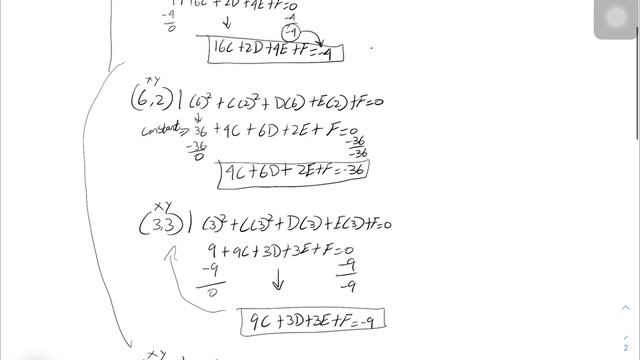 16C+2D+4E+F=0
-4 -4
0 -4
16C+2D+4E+F=-4
xy
(6,2) | (6)²+C(2)²+D(6)+E(2)+F=0
constant → 36 +4C+6D+2E+F=0
-36 -36
0 -36
4C+6D+2E+F=-36
xy
(3,3) | (3)²+C(3)²+D(3)+E(3)+F=0
9+9C+3D+3E+F=0
-9 -9
0 -9
9C+3D+3E+F=-9
xy
2